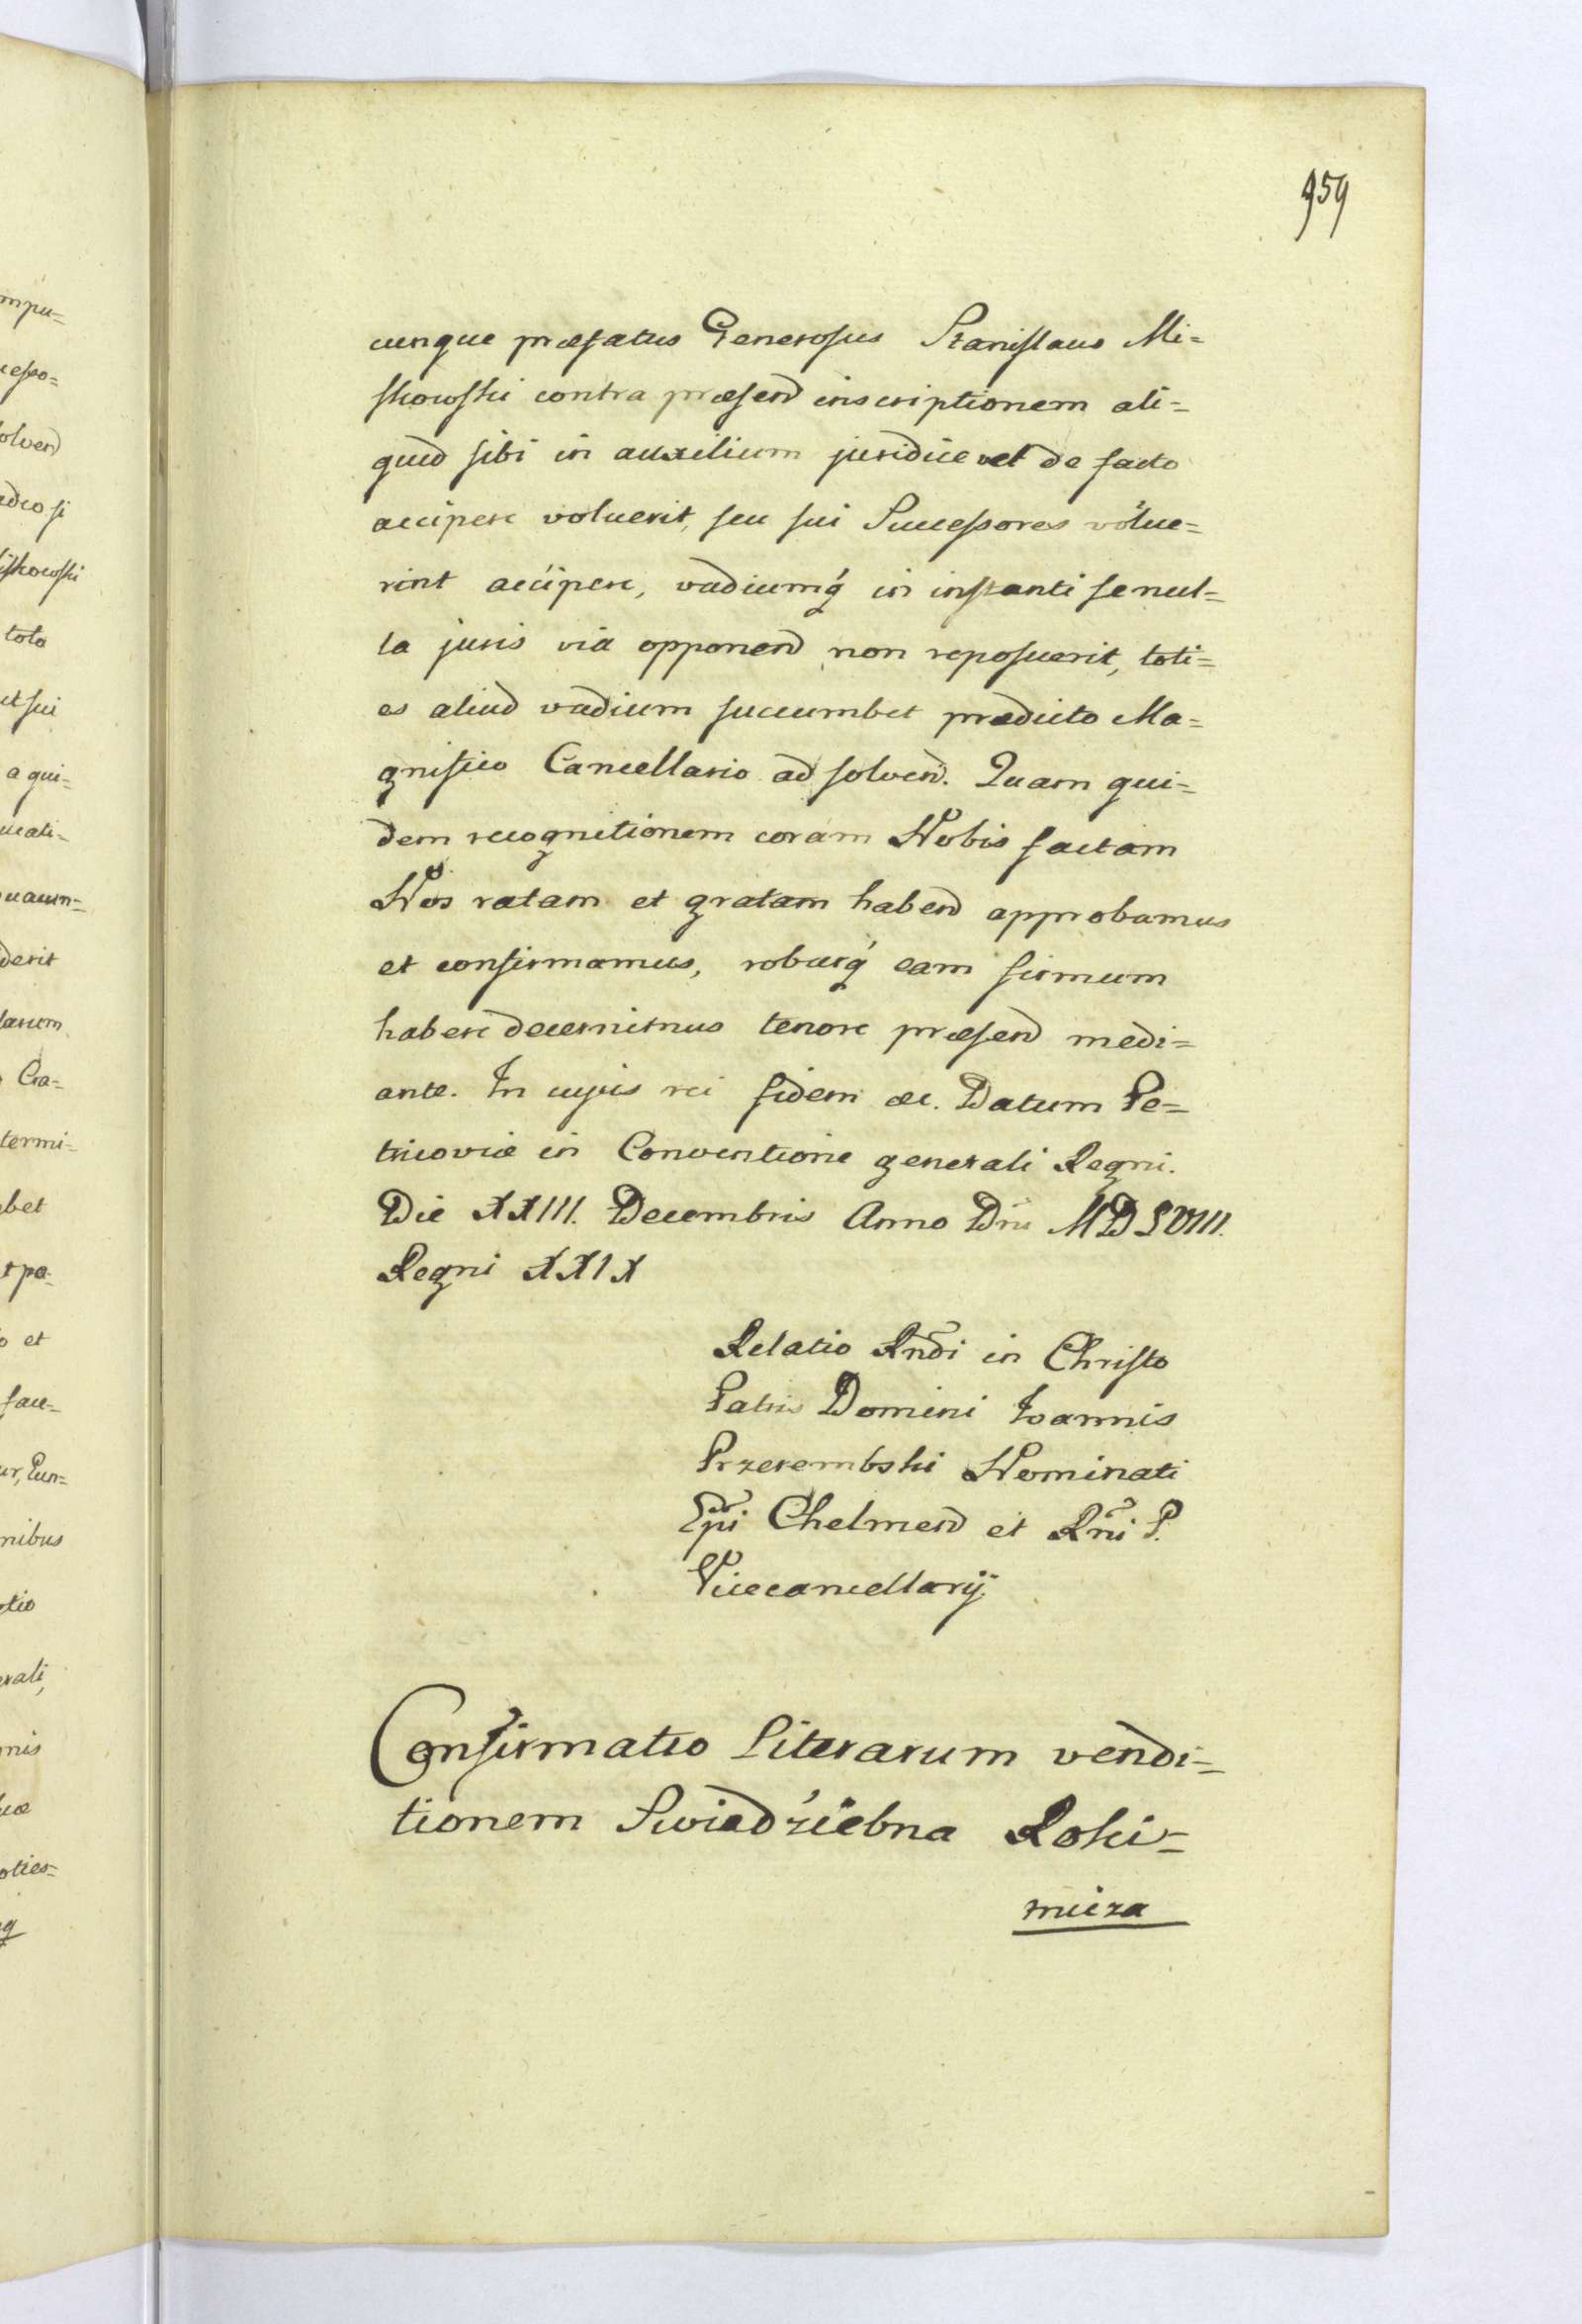 959
cunque præfatus Generosus Stanislaus Mi=
skowski contra præsend inscriptionem ali=
quid sibi in auxilium juridice vel de facto
accipere voluerit, seu sui Successores volue=
rint accipere, vadiumq́ in instanti se nul=
la juris via opponend non reposuerit, toti=
es aliud vadium succumbet prædicto Ma=
gnifico Cancellario ad solvend. Quam qui=
dem recognitionem coram Nobis factam
Nos ratam et gratam habend approbamus
et confirmamus, roburq́ eam firmum
habere decernimus tenore præsend medi=
ante. In cujus rei fidem æc. Datum Pe=
tricoviæ in Conventione generali Regni.
Die XXIII. Decembris Anno Dni MDLVIII.
Regni XXIX
Relatio Rndi in Christo
Patris Domini Joannis
Przerembski Nominati
Epi Chelmend et Rni P.
Vicecancellarij.
Confirmatio Literarum vendi=
tionem Swiadźiebna Roki=
micza
mpu=
cesso=
olvend
adeo si
iskowski
toto
et sui
a qui=
derit
Cra=
termi=
bet
o et
fac=
nibus
erali,
nis
oties=